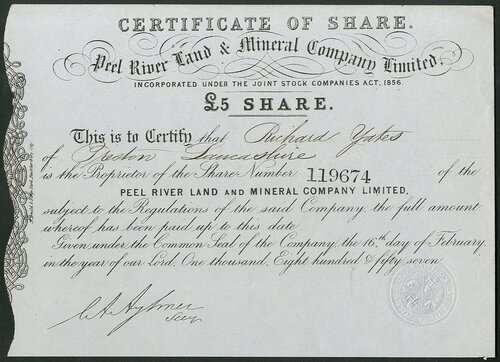 CERTIFICATE OF SHARE.
Peel River Land & Mineral Company Limited.
INCORPORATED UNDER THE JOINT STOCK COMPANIES ACT, 1856.
£5 SHARE.
This is to Certify that Richard Yates
of Preston Lancashire
is the Proprietor of the Share Number 119674 of the
PEEL RIVER LAND AND MINERAL COMPANY LIMITED,
subject to the Regulations of the said Company, the full amount
whereof has been paid up to this date.
Given under the Common Seal of the Company, the 16th day of February,
in the year of our Lord, One thousand, Eight hundred & fifty seven.
Secy